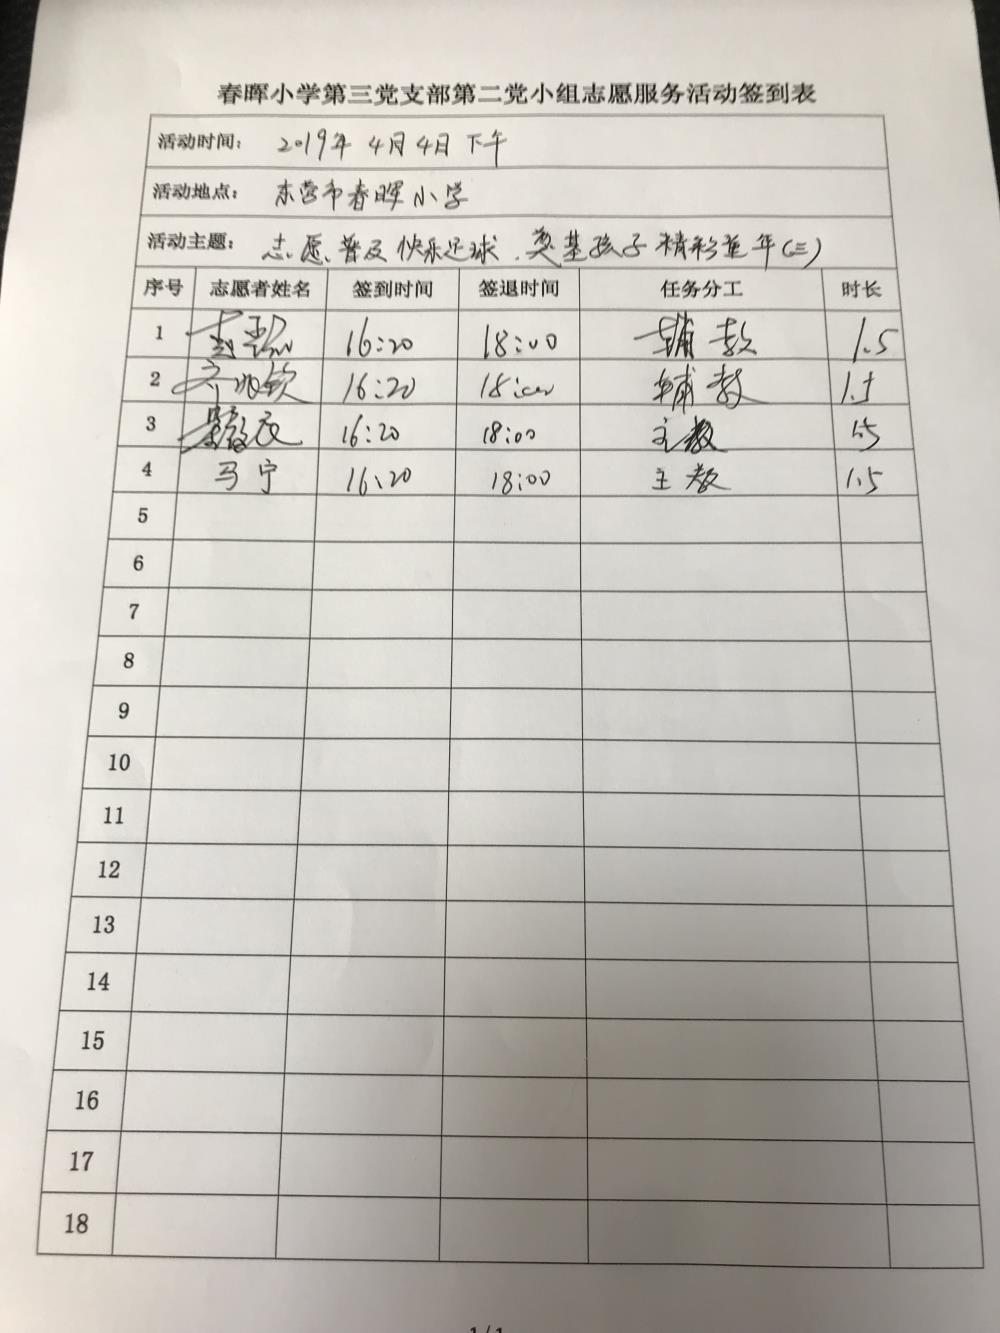 春晖小学第三党支部第二党小组志愿服务活动签到表
活动时间： 2019年4月4日下午
活动地点： 东营市春晖小学
活动主题： 志愿普及快乐足球，奠基孩子精彩童年(三)
序号 志愿者姓名 签到时间 签退时间 任务分工 时长
1 16:20 18:00 辅教 1.5
2 16:20 18:00 辅教 1.5
3 16:20 18:00 主教 1.5
4 马宁 16:20 18:00 主教 1.5
5
6
7
8
9
10
11
12
13
14
15
16
17
18
1 / 1